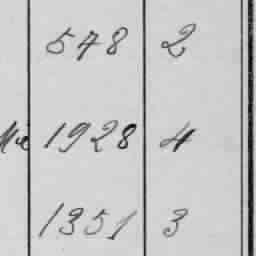 578 2
1928 4
1351 3